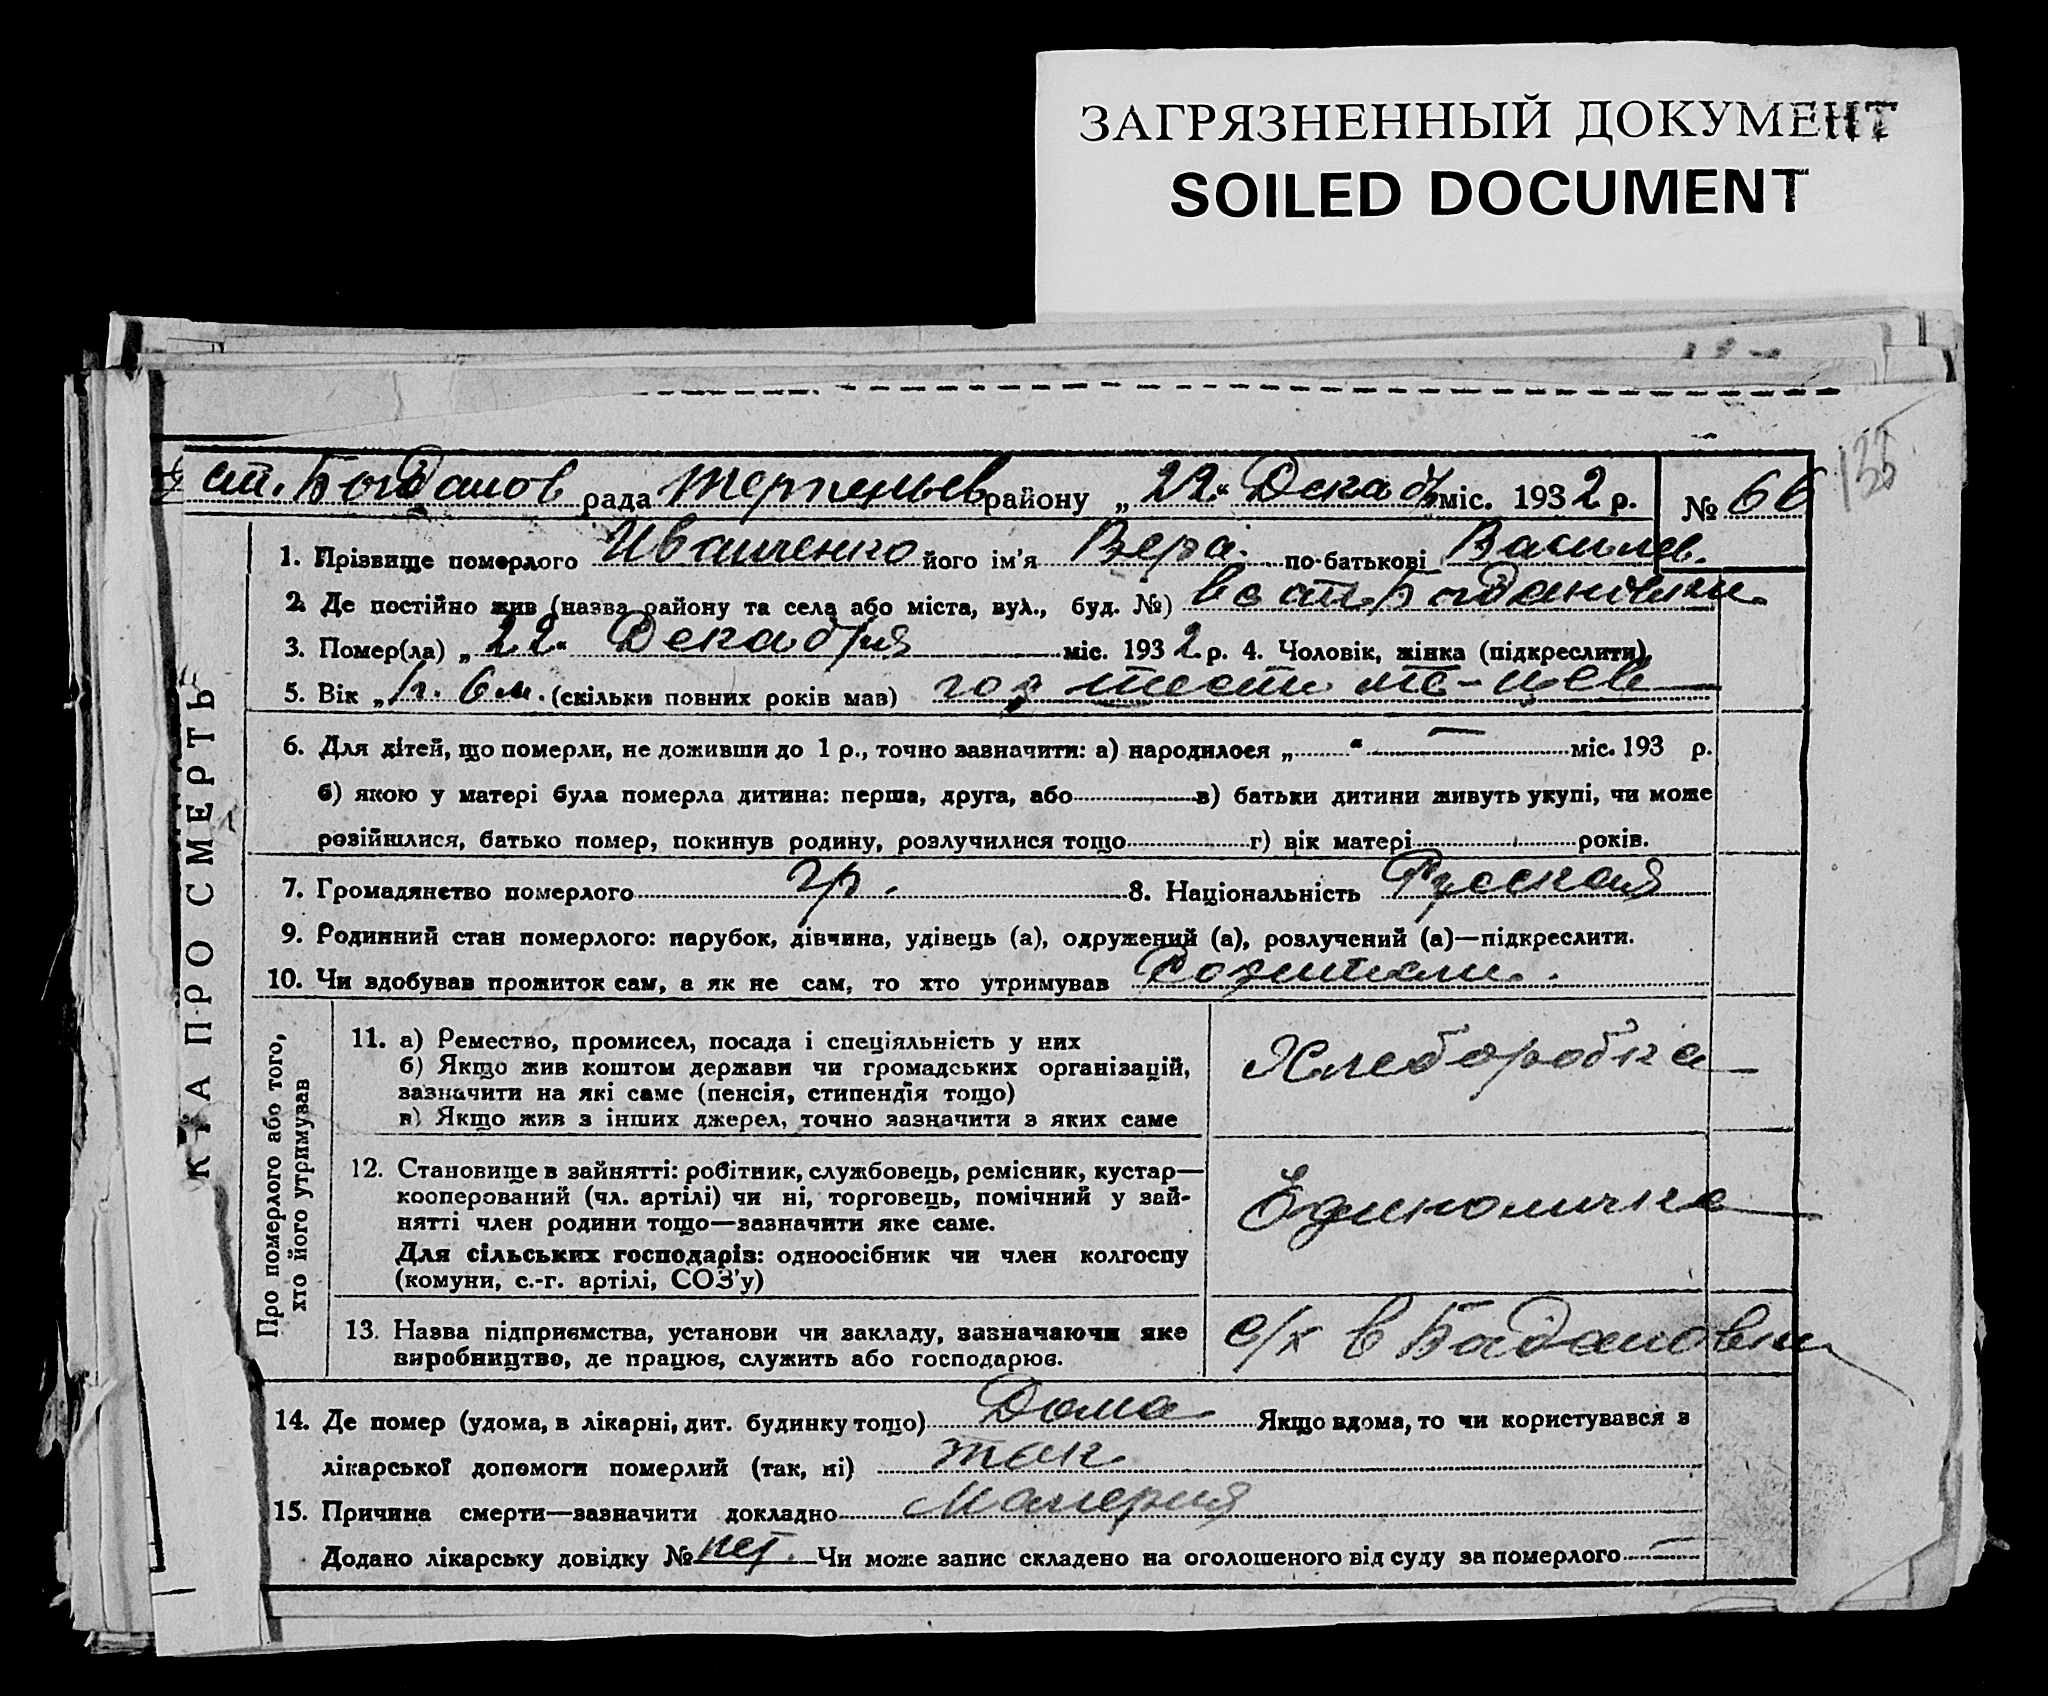 ЗАГРЯЗНЕННЫЙ ДОКУМЕНТ
SOILED DOCUMENT
135
ст. Богданов рада Терпеньев району „22“ Декаб міс. 1932 р. № 66
1. Прізвище померлого Иващенко його ім'я Вера. по-батькові Василев.
2. Де постійно жив (назва району та села або міста, вул., буд. №) в с ст. Богдановки
3. Помер(ла) „22“ Декабря міс. 1932 р. 4. Чоловік, жінка (підкреслити).
5. Вік „1г. 6м. (скільки повних років мав) год шесть ме-цев
6. Для дітей, що померли, не доживши до 1 р., точно зазначити: а) народилося „ “ — міс. 193 р.
б) якою у матері була померла дитина: перша, друга, або в) батьки дитини живуть укупі, чи може
розійшлися, батько помер, покинув родину, розлучилися тощо г) вік матері років.
7. Громадянство померлого гр. 8. Національність Русская
9. Родинний стан померлого: парубок, дівчина, удівець (а), одружений (а), розлучений (а)—підкреслити.
10. Чи здобував прожиток сам, а як не сам, то хто утримував
КА ПРО СМЕРТЬ
Про померлого або того,
хто його утримував
11. а) Ремество, промисел, посада і спеціяльність у них
б) Якщо жив коштом держави чи громадських організацій,
зазначити на які саме (пенсія, стипендія тощо)
в) Якщо жив з інших джерел, точно зазначити з яких саме
Хлеборобка
12. Становище в зайнятті: робітник, службовець, ремісник, кустар—
кооперований (чл. артілі) чи ні, торговець, помічний у зай-
нятті член родини тощо—зазначити яке саме.
Для сільських господарів: одноосібник чи член колгоспу
(комуни, с.-г. артілі, СОЗ'у)
Единоличка
13. Назва підприємства, установи чи закладу, зазначаючи яке
виробництво, де працює, служить або господарює.
с/х в Багдановки
14. Де помер (удома, в лікарні, дит. будинку тощо) Дома Якщо вдома, то чи користувався з
лікарської допомоги померлий (так, ні) так
15. Причина смерти—зазначити докладно Малерия
Додано лікарську довідку № нет. Чи може запис складено на оголошеного від суду за померлого —